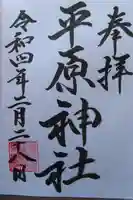 奉拝
平原神社
令和四年二月二十八日